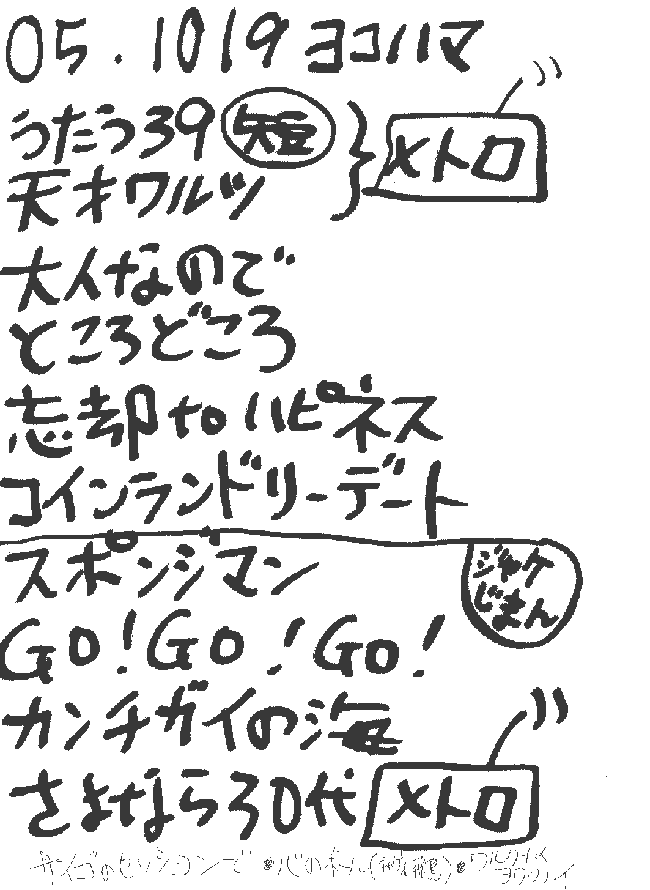 05.1019 ヨコハマ
うたう39 短 メトロ
天才ワルツ
大人なので
ところどころ
忘却toハピネス
コインランドリーデート
スポンジマン ジャケじまん
GO!GO!GO!
カンチガイの海
さよなら30代 メトロ